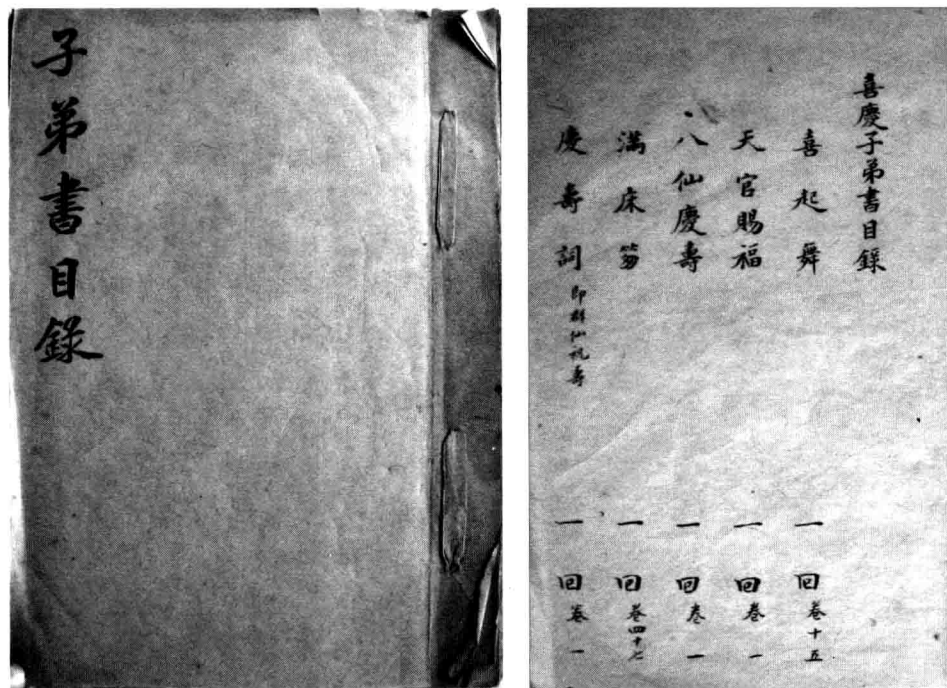 子弟書目錄
喜慶子弟書目錄
喜起舞 一回 卷十五
天官賜福 一回 卷一
八仙慶壽 一回 卷一
滿床笏 一回 卷四十七
慶壽詞 即群仙祝壽 一回 卷一